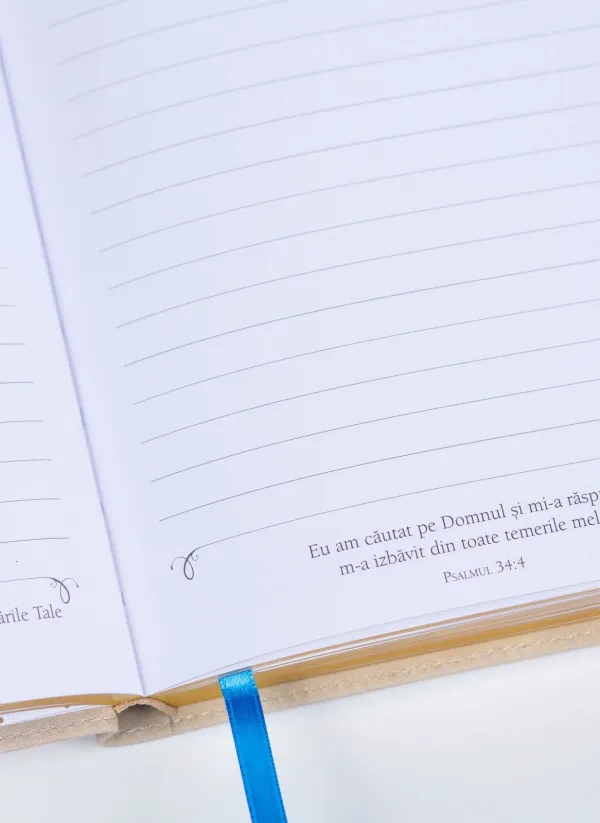 ările Tale
Eu am căutat pe Domnul și mi-a răsp
m-a izbăvit din toate temerile mel
Psalmul 34:4